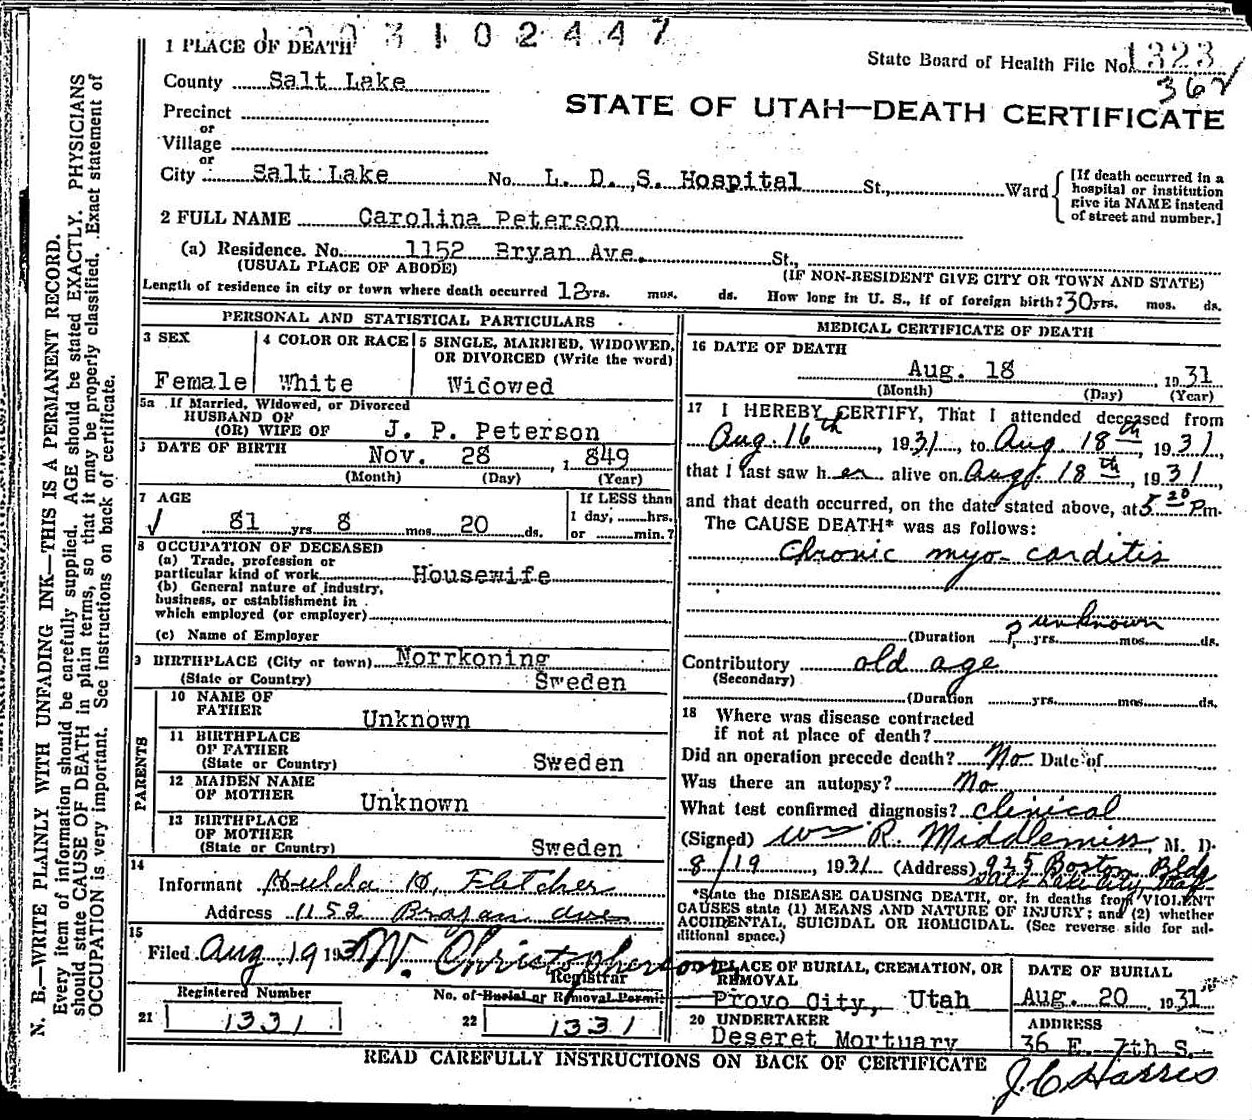 1 0 0 3 1 0 2 4 4 7
1 PLACE OF DEATH
State Board of Health File No. 1323
362
County Salt Lake
STATE OF UTAH—DEATH CERTIFICATE
Precinct
or
Village
or
City Salt Lake No. L. D. S. Hospital St., Ward
[If death occurred in a
hospital or institution
give its NAME instead
of street and number.]
2 FULL NAME Carolina Peterson
(a) Residence. No. 1152 Bryan Ave. St.,
(USUAL PLACE OF ABODE) (IF NON-RESIDENT GIVE CITY OR TOWN AND STATE)
Length of residence in city or town where death occurred 12 yrs. mos. ds. How long in U. S., if of foreign birth? 30 yrs. mos. ds.
PERSONAL AND STATISTICAL PARTICULARS
3 SEX
Female
4 COLOR OR RACE
White
5 SINGLE, MARRIED, WIDOWED,
OR DIVORCED (Write the word)
Widowed
5a If Married, Widowed, or Divorced
HUSBAND OF
(OR) WIFE OF J. P. Peterson
DATE OF BIRTH Nov. 28, 1849
(Month) (Day) (Year)
7 AGE
81 yrs 8 mos. 20 ds.
If LESS than
1 day, hrs.
or min.?
8 OCCUPATION OF DECEASED
(a) Trade, profession or
particular kind of work Housewife
(b) General nature of industry,
business, or establishment in
which employed (or employer)
(c) Name of Employer
9 BIRTHPLACE (City or town) Norrkoning
(State or Country) Sweden
PARENTS
10 NAME OF
FATHER Unknown
11 BIRTHPLACE
OF FATHER
(State or Country) Sweden
12 MAIDEN NAME
OF MOTHER Unknown
13 BIRTHPLACE
OF MOTHER
(State or Country) Sweden
14
Informant Hulda H. Fletcher
Address 1152 Bryan Ave
15
Filed Aug 19 1931 W. Christopherson
Registrar
Registered Number
21 1331
No. of Burial or Removal Permit
22 1331
MEDICAL CERTIFICATE OF DEATH
16 DATE OF DEATH
Aug. 18, 1931
(Month) (Day) (Year)
17 I HEREBY CERTIFY, That I attended deceased from
Aug. 16th, 1931, to Aug. 18th, 1931,
that I last saw her alive on Aug. 18th, 1931,
and that death occurred, on the date stated above, at 5 20 P m.
The CAUSE DEATH* was as follows:
Chronic myo-carditis
unknown
(Duration ? yrs. mos. ds.
Contributory old age
(Secondary)
(Duration yrs. mos. ds.
18 Where was disease contracted
if not at place of death?
Did an operation precede death? No Date of
Was there an autopsy? No
What test confirmed diagnosis? clinical
(Signed) Wm R. Middlemiss, M. D.
8/19, 1931 (Address) 925 Boston Bldg
Salt Lake City, Utah
*State the DISEASE CAUSING DEATH, or, in deaths from VIOLENT
CAUSES state (1) MEANS AND NATURE OF INJURY; and (2) whether
ACCIDENTAL, SUICIDAL OR HOMICIDAL. (See reverse side for ad-
ditional space.)
PLACE OF BURIAL, CREMATION, OR
REMOVAL
Provo City, Utah
DATE OF BURIAL
Aug. 20, 1931
20 UNDERTAKER
Deseret Mortuary
ADDRESS
36 E. 7th S.
READ CAREFULLY INSTRUCTIONS ON BACK OF CERTIFICATE
J. C. Harris
N. B.—WRITE PLAINLY WITH UNFADING INK—THIS IS A PERMANENT RECORD.
Every item of information should be carefully supplied. AGE should be stated EXACTLY. PHYSICIANS
should state CAUSE OF DEATH in plain terms, so that it may be properly classified. Exact statement of
OCCUPATION is very important. See Instructions on back of certificate.